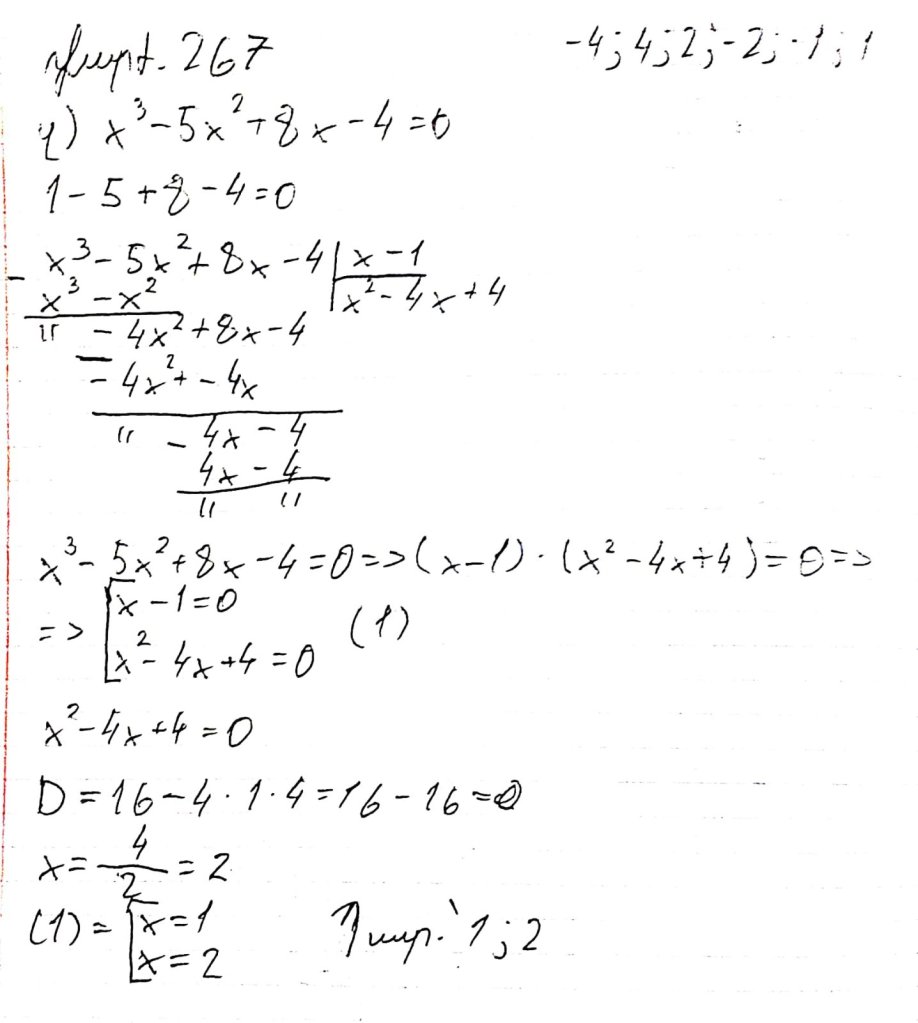 վարժ. 267
-4; 4; 2; -2; -1; 1
դ) x³-5x²+8x-4=0
1-5+8-4=0
- x³-5x²+8x-4 | x-1
x³-x² | x²-4x+4
" -4x²+8x-4
-4x²+-4x
" -4x-4
4x-4
" "
x³-5x²+8x-4=0=>(x-1)·(x²-4x+4)=0=>
=> [x-1=0
x²-4x+4=0 (1)
x²-4x+4=0
D=16-4·1·4=16-16=0
x=4/2=2
(1)=[x=1
x=2
Պատ.՝ 1; 2